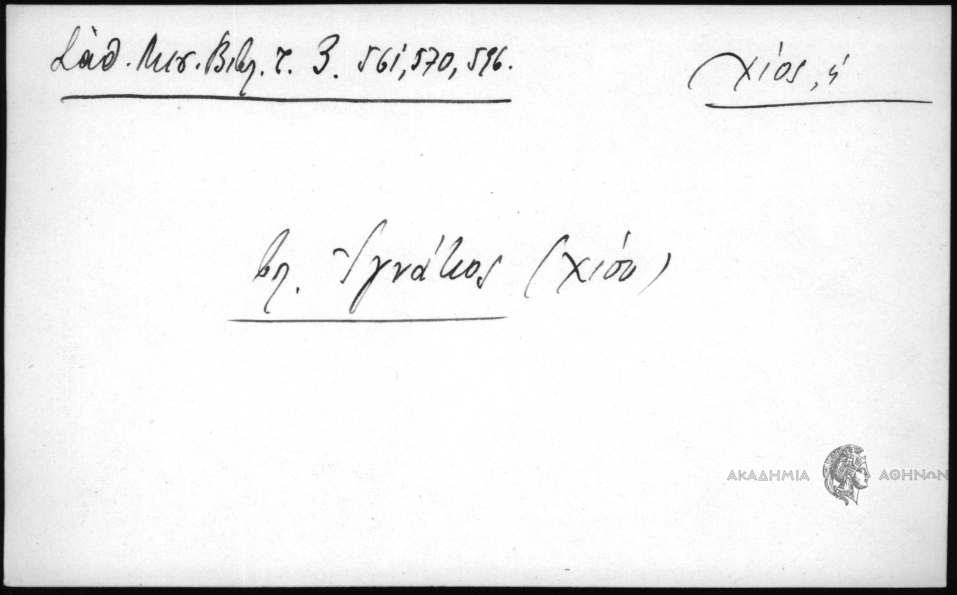 Σάθ. Μεσ. Βιβλ. τ. 3. 561, 570, 596.
Χίος, ἡ
βλ. Ἰγνάτιος (Χίου)
ΑΚΑΔΗΜΙΑ ΑΘΗΝΩΝ